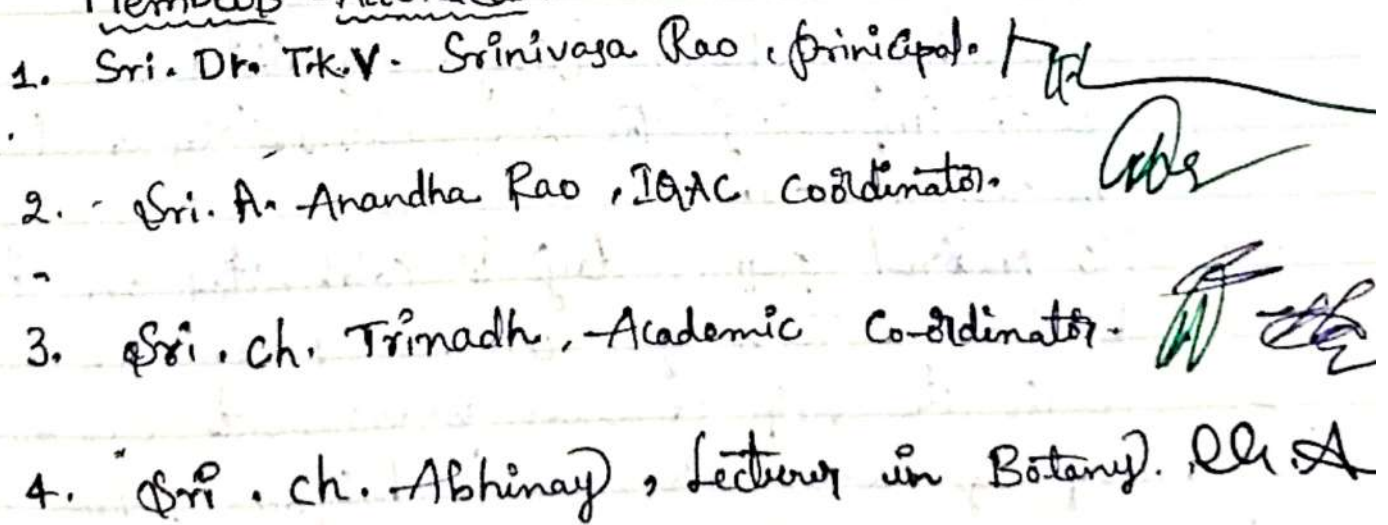 Members
1. Sri. Dr. T.K.V. Srinivasa Rao, Prinicipal.
2. Sri. A. Anandha Rao, IQAC Coordinator.
3. Sri. Ch. Trinadh, Academic Co-ordinator.
4. Sri. Ch. Abhinay, Lecturer in Botany. Ch. A